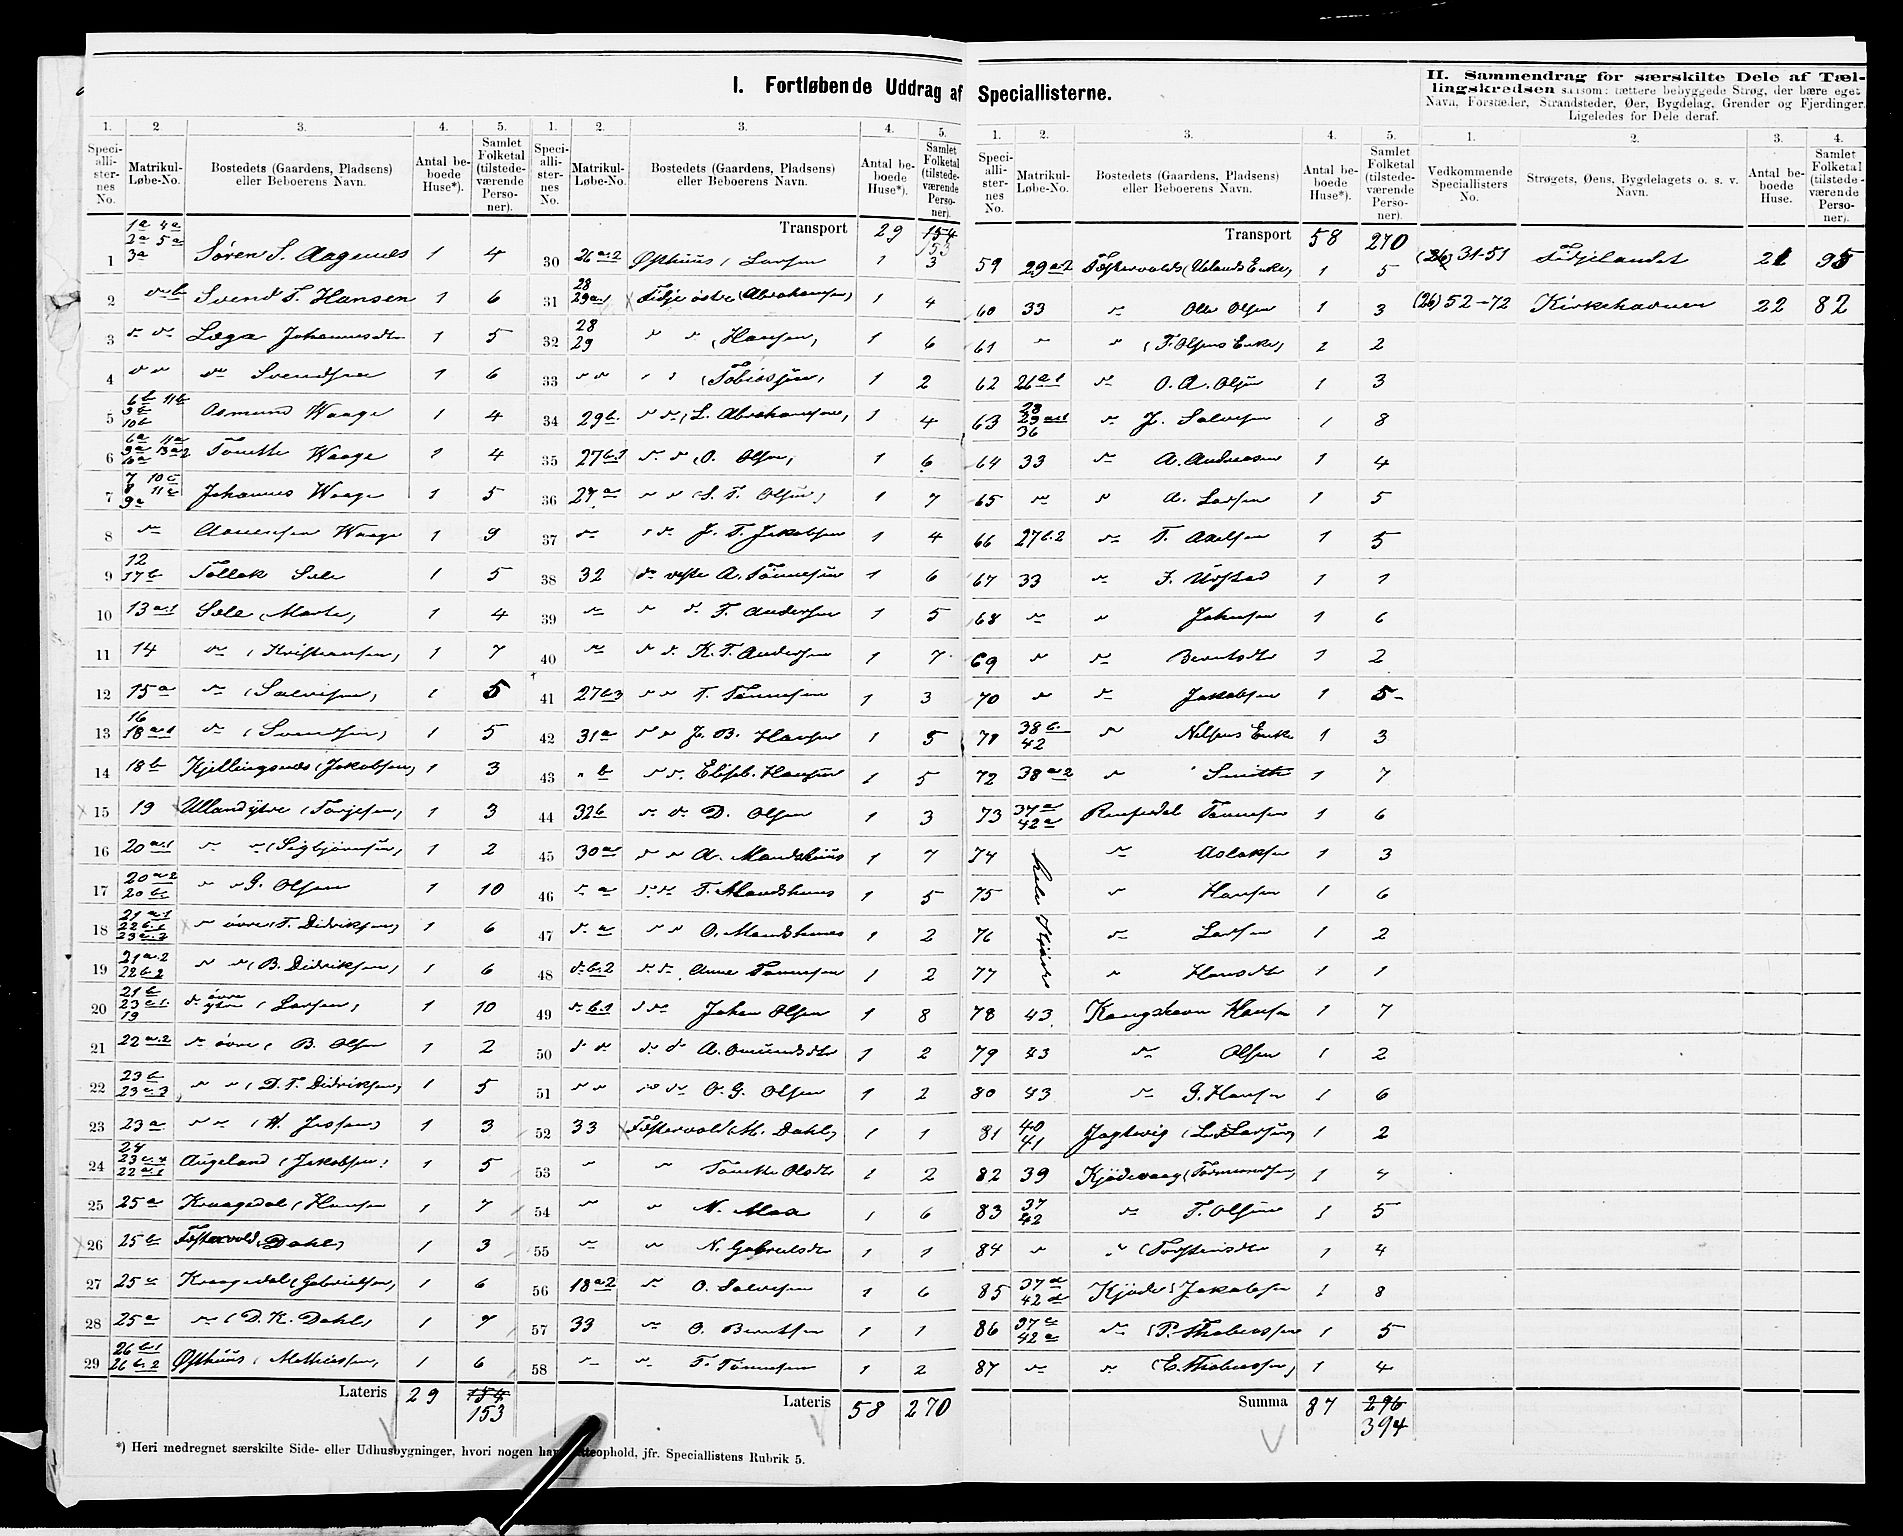 I. Fortløbende Uddrag af Speciallisterne.
II. Sammendrag for særskilte Dele af Tæl-
lingskredsen saasom: tættere bebyggede Strøg, der bære eget
Navn, Forstæder, Strandsteder, Øer, Bygdelag, Grender og Fjerdinger.
Ligeledes for Dele deraf.
1. 2 3. 4. 5. 1. 2. 3. 4. 5.
Speci-alli-ster-nes No. Matrikul-Løbe-No. Bostedets (Gaardens, Pladsens) eller Beboerens Navn. Antal be-boede Huse*). Samlet Folketal (tilstede-værende Perso-ner).
1 1a 4a 2a 5a 3a Søren S. Aagenæs 1 4
2 do b Svend T. Hansen 1 6
3 do do Læga Johannesdtr 1 5
4 do do do Svendsen 1 6
5 6b 11b 9b 10b Osmund Waage 1 4
6 6a 11a 9a 13a2 10a Tønette Waage 1 4
7 7 10c 8 11c 9a Johannes Waage 1 5
8 do Waage 1 9
9 12 17b Tollak Sele 1 5
10 13a1 Sele (Marte) 1 4
11 14 do (Kristiansen) 1 7
12 15a do (Salvesen) 1 5
13 16 18a1 do (Svendsen) 1 5
14 18b Kjellingsnæs (Jakobsen) 1 3
15 19 Ulland ytre (Torjesen) 1 3
16 20a1 do do (Sigbjørnsen) 1 2
17 20a2 20b do do G. Olsen 1 10
18 21a1 22b1 23c2 do øvre (T. Didriksen) 1 6
19 21a2 22b2 do do (B. Didriksen) 1 6
20 21b 23c1 19 do øvre ytre (Larsen) 1 10
21 22a2 do øvre (B. Olsen 1 2
22 23b 23c3 do do (D. T. Didriksen) 1 5
23 23a do do (H. Jessen) 1 3
24 24 23c4 22a1 Augeland (Jakobsen) 1 5
25 25a Kraagedal (Hansen 1 7
26 25b Føstervold (Dahl) 1 3
27 25c Kraagedal (Gabrielsen) 1 6
28 25a do (D. K. Dahl) 1 7
29 26b1 26b2 Østhuus (Mathiassen) 1 6
Lateris 29 154 153
Transport 29 154 153
30 26a2 Østhuus (Larsen 1 3
31 28 29a1 Fidje østre (Abrahamsen) 1 4
32 28 29 do do (Hansen) 1 6
33 do do do do (Tobiassen) 1 2
34 29b do do (L. Abrahamsen) 1 4
35 27b1 do do (O. Olsen) 1 6
36 27a do do (S. T. Olsen) 1 7
37 do do do J. T. Jakobsen 1 4
38 32 do vestre A. Tønnesen 1 6
39 do do do T. Andersen 1 5
40 do do do K. T. Andersen 1 7
41 27b3 do do T. Tønnesen 1 3
42 31a do do J. B. Hansen 1 5
43 " b do do Elisb. Hansen 1 5
44 32b do do D. Olsen 1 3
45 30a do do A. Mandshuus 1 7
46 do a do do T. Mandshuus 1 5
47 do a do do O. Mandshuus 1 2
48 do b2 do do Anne Tønnesen 1 2
49 do b1 do do Johan Olsen 1 8
50 do do do do A. Omundsdtr 1 2
51 do do do do O. G. Olsen 1 2
52 33 Føstervold (M. Dahl) 1 1
53 do do Tønette Olsdtr 1 2
54 do do N. Moa 1 6
55 do do N. Gabrielsdtr 1 1
56 18a2 do O. Salvesen 1 6
57 33 do O. Berntsen 1 1
58 do do T. Tønnesen 1 2
Lateris 58 270
1. 2. 3. 4. 5.
Transport 58 270
59 29a2 Føstervold (Ulands Enke) 1 5
60 33 do Ole Olsen 1 3
61 do do (T. Olsens Enke) 1 2
62 26a1 do O. A. Olsen 1 3
63 28 29a1 36 do J. Salvesen 1 8
64 33 do A. Andreasen 1 4
65 do do A. Larsen 1 5
66 27b2 do T. Axelsen 1 5
67 33 do Urstad 1 1
68 do do Johnsen 1 6
69 do do Berntsdtr 1 2
70 do do Jakobsen 1 5
71 38b 42 do Nilsens Enke 1 3
72 38a2 do Smith 1 7
73 37a 42a Tønnesen 1 6
74 do Aslaksen 1 3
75 do Hansen 1 6
76 do Larsen 1 2
77 do Hansdtr 1 1
78 43 Kongshavn Hansen 1 7
79 43 do Olsen 1 2
80 43 do G. Hansen 1 6
81 40 41 Jagtvig 1 2
82 39 Kjødevaag (Tormundsen) 1 4
83 37 42 do T. Olsen 1 5
84 do do (Torstensdtr 1 4
85 37d 42d Kjøde (Jakobsen 1 8
86 37c 42a do (P. Thobiassen 1 5
87 do do (E. Thobiassen) 1 4
Summa 87 296 394
1. 2. 3. 4.
Vedkommende Speciallisters No. Strøgets, Øens, Bygdelagets o. s. v. Navn. Antal be-boede Huse. Samlet Folketal (tilstede-værende Perso-ner).
(26) 31-51 Fidjelandet 21 95
(26) 52-72 Kirkehavnen 22 82
*) Heri medregnet særskilte Side- eller Udhusbygninger, hvori nogen har Natteophold, jfr. Speciallistens Rubrik 5.